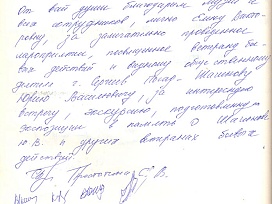 От всей души благодарим музей и
всех сотрудников, лично Елену Вика-
ровну за замечательно проведенное
мероприятие, посвященное ветерану бо-
евых действий и видному общественному
деятелю г. Сочи
Юрию Васильевичу, за интересную
встречу, экскурсию, подготовленную
экспозицию в память о
Ю.В. и других ветеранах боевых
действий